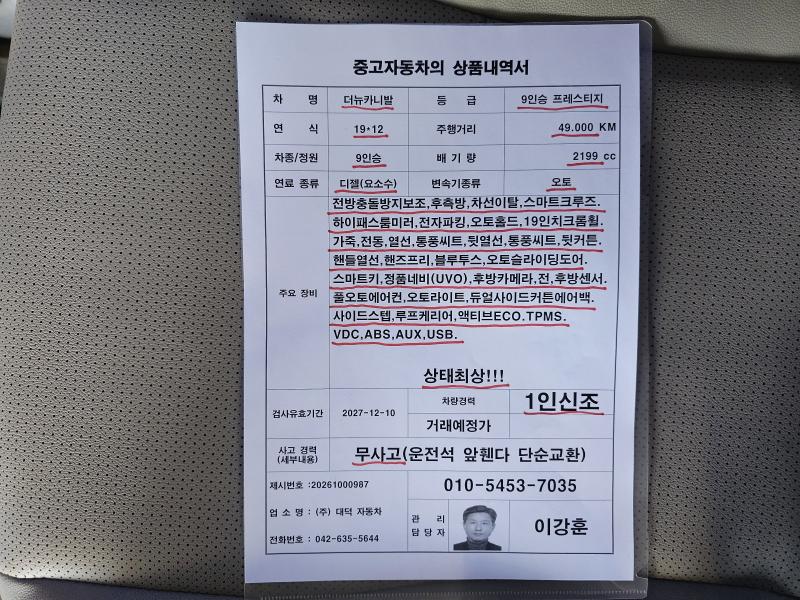 중고자동차의 상품내역서
차 명 더뉴카니발 등 급 9인승 프레스티지
연 식 19*12 주행거리 49.000 KM
차종/정원 9인승 배 기 량 2199 cc
연료 종류 디젤(요소수) 변속기종류 오토
주요 장비
전방충돌방지보조,후측방,차선이탈,스마트크루즈.
하이패스룸미러,전자파킹,오토홀드,19인치크롬휠.
가죽,전동,열선,통풍씨트,뒷열선,통풍씨트,뒷커튼.
핸들열선,핸즈프리,블루투스,오토슬라이딩도어.
스마트키,정품네비(UVO),후방카메라,전,후방센서.
풀오토에어컨,오토라이트,듀얼사이드커튼에어백.
사이드스텝,루프케리어,액티브ECO.TPMS.
VDC,ABS,AUX,USB.
상태최상!!!
검사유효기간 2027-12-10 차량경력 1인신조
거래예정가
사고 경력
(세부내용)
무사고(운전석 앞휀다 단순교환)
제시번호 :20261000987
010-5453-7035
업 소 명 : (주) 대덕 자동차
관 리
담 당 자
이강훈
전화번호 : 042-635-5644